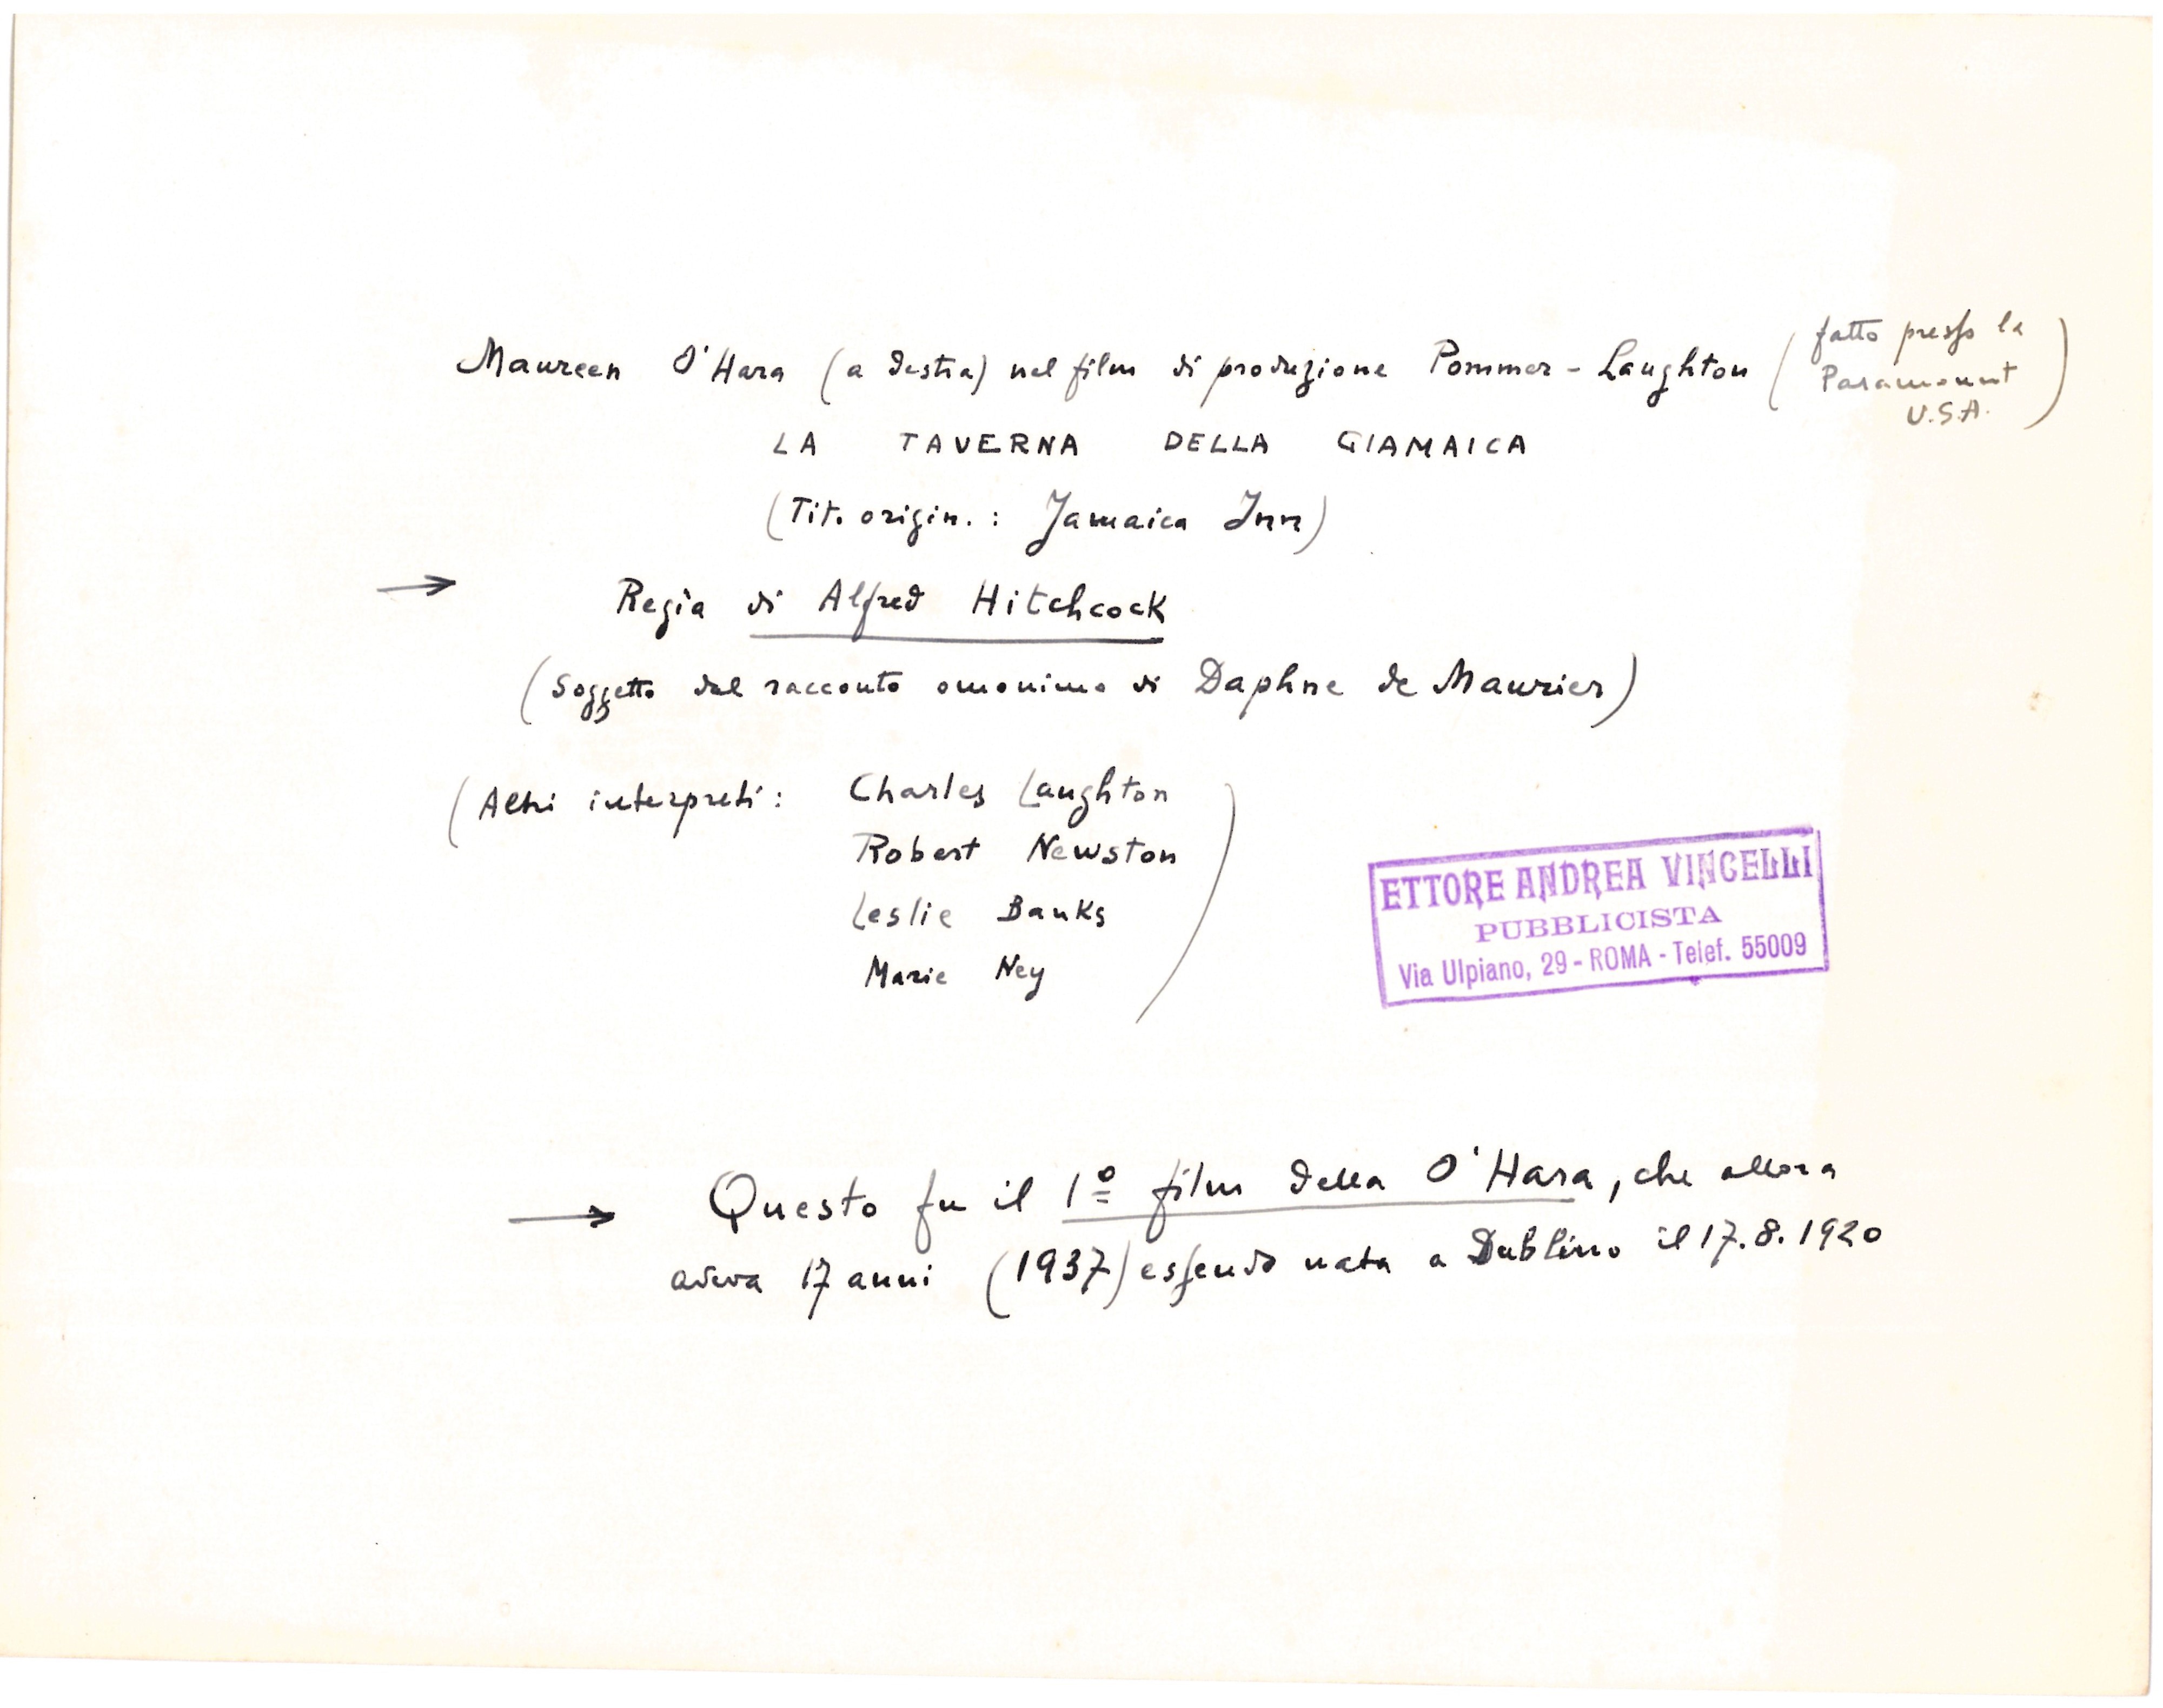 Maureen O'Hara (a destra) nel film di produzione Pommer - Laughton (fatto presso la
Paramount
U.S.A.)
LA TAVERNA DELLA GIAMAICA
(Tit. origin.: Jamaica Inn)
→ Regia di Alfred Hitchcock
(Soggetto dal racconto omonimo di Daphne de Maurier)
(Altri interpreti: Charles Laughton
Robert Newston
Leslie Banks
Marie Ney)
ETTORE ANDREA VINCELLI
PUBBLICISTA
Via Ulpiano, 29 - ROMA - Telef. 55009
→ Questo fu il 1º film della O'Hara, che allora
aveva 17 anni (1937) essendo nata a Dublino il 17.8.1920